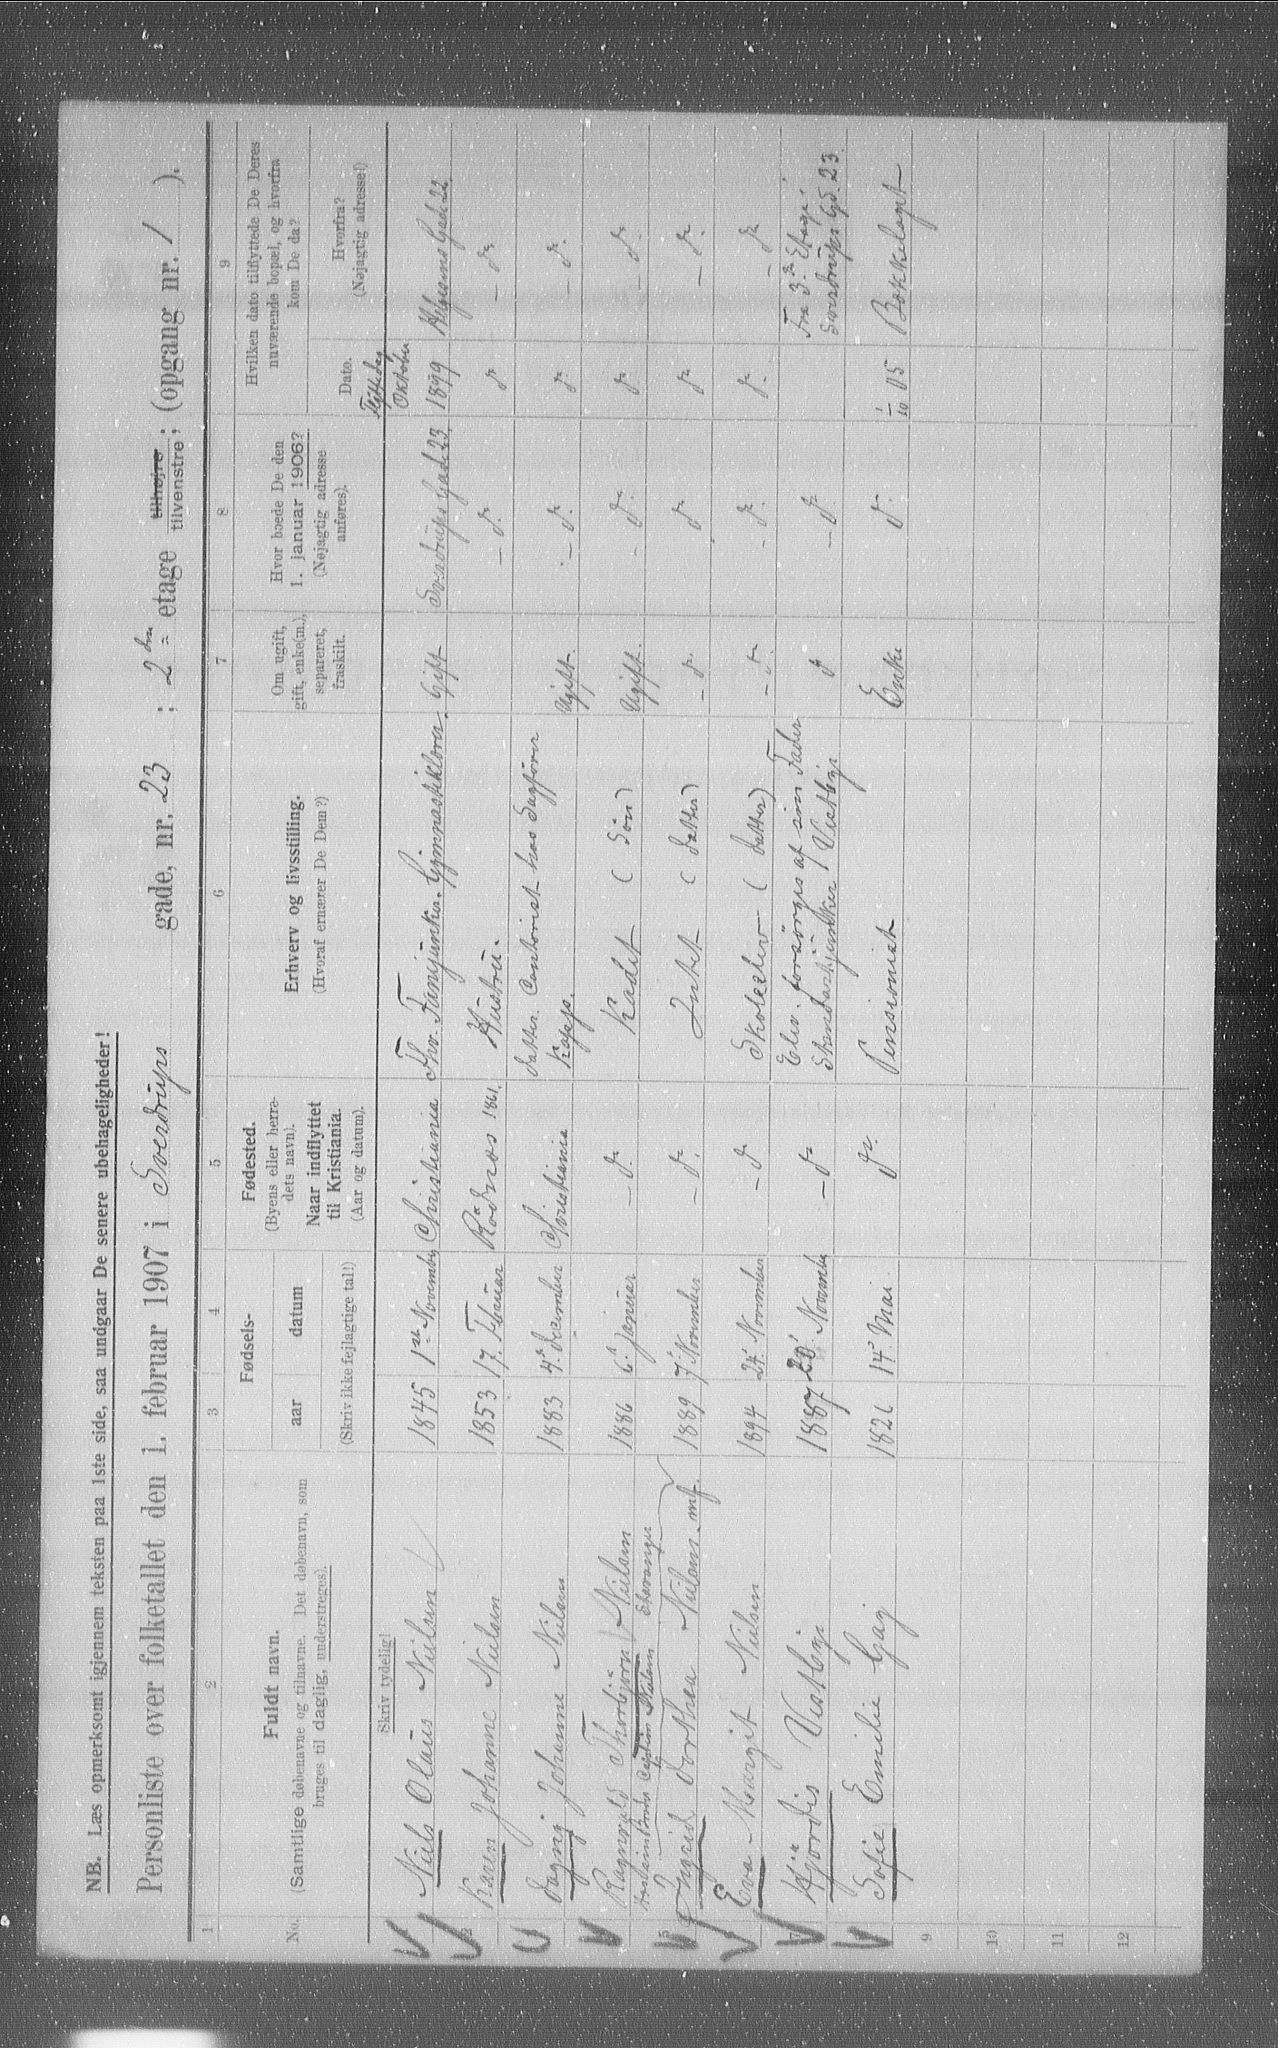 NB. Læs opmerksomt igjennem teksten paa 1ste side, saa undgaar De senere ubehageligheder!
Personliste over folketallet den 1. februar 1907 i Sverdrups gade, nr. 23 ; 2den etage tilhøjre tilvenstre ; (opgang nr. 1 ).
1 2 3 4 5 6 7 8 9
No.
Fuldt navn.
(Samtlige døbenavne og tilnavne. Det døbenavn, som
bruges til daglig, understreges).
Skriv tydelig!
Fødsels-
aar datum
(Skriv ikke fejlagtige tal!)
Fødested.
(Byens eller herre-
dets navn).
Naar indflyttet
til Kristiania.
(Aar og datum).
Erhverv og livsstilling.
(Hvoraf ernærer De Dem?)
Om ugift,
gift, enke(m.),
separeret,
fraskilt.
Hvor boede De den
1. januar 1906?
(Nøjagtig adresse
anføres).
Hvilken dato tilflyttede De Deres
nuværende bopæl, og hvorfra
kom De da?
Dato.
Hvorfra?
(Nøjagtig adresse!)
Oktober
Niels Olaus Nielsen 1845 1st November Christiania Fhv. Fanejunker. Gymnastiklærer. Gift Sverdrups Gade 23. 1899 Helgesens Gade 22.
2 Karen Johanne Nielsen 1853 17. Februar Rödnæs 1861. Hustru. — do. do — do
Dagny Johanne Nielsen 1883 4. December Christiania Datter. Contorist hos Sagfører
Kopp. Ugift. — do. do — do.
Ragnvald Thorbjørn Nielsen 1886 6. Januar — do. Kadet ( Søn ) Ugift. — do. do — do.
5 Ingrid Dorthea Nielsen. mf. 1889 7. November — do. Intet ( Datter ) — do. do do — do.
Eva Margit Nielsen 1894 24. November — do Skoleelev ( Datter ) — do. — do. do. — do
7 Hjørdis Vestbye 1887 20. Novemb. — do Elev. forsørges af sin Fader
Standartjunker Vestbye do — do Fra 3die Etage
Sverdrups Gd. 23.
Sofie Emilie Gaij 1821 14. Mai. do. Pensionist Enke do. 1/10 05 Bakkelaget
9
10
11
12